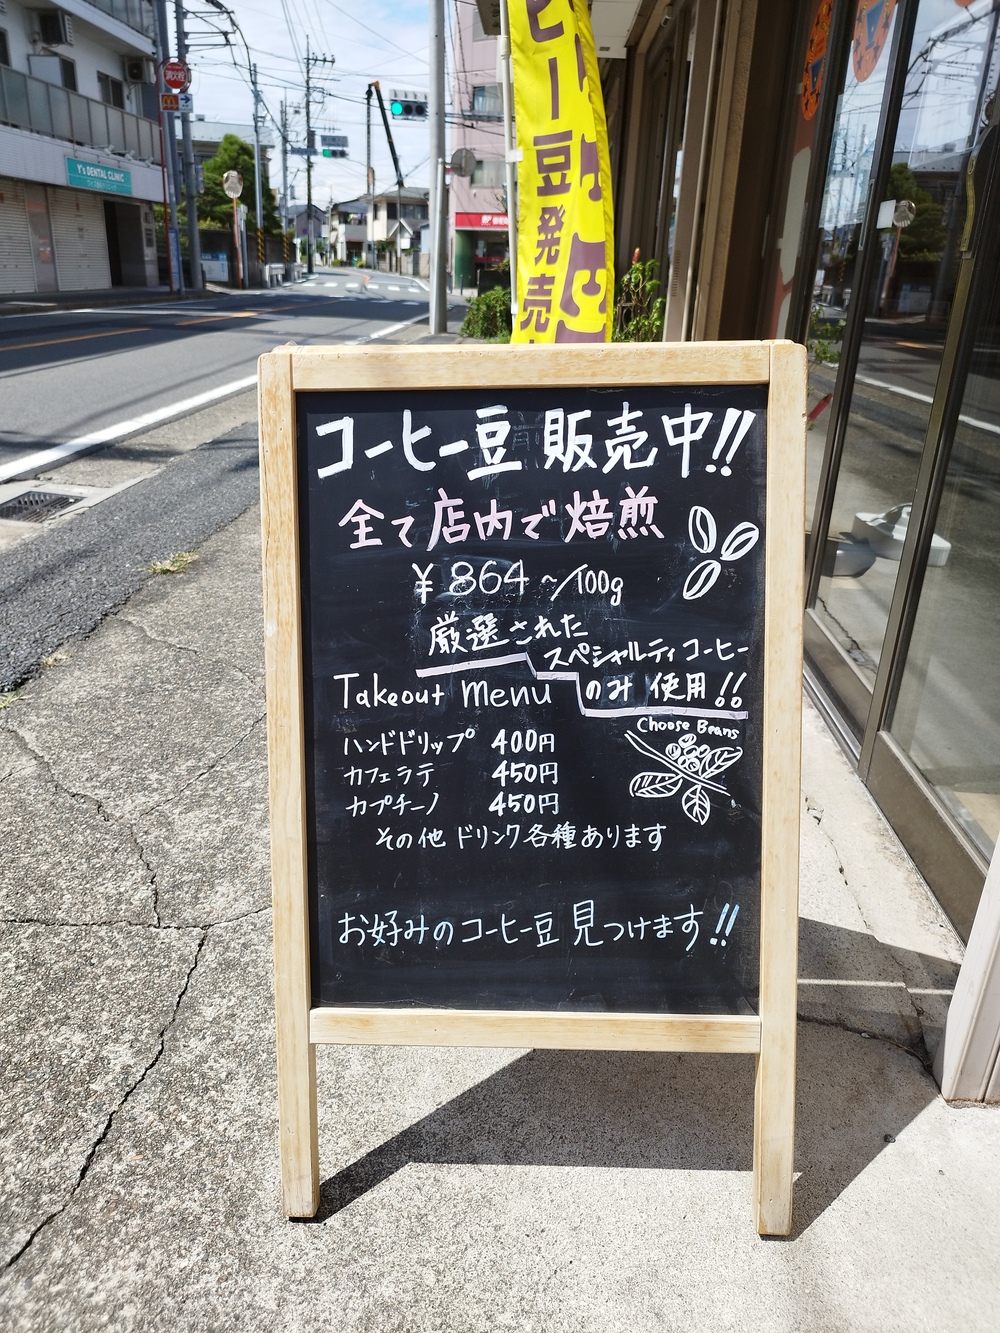 消火栓
Y's DENTAL CLINIC
ヒー豆発売
コーヒー豆 販売中!!
全て店内で焙煎
¥864～/100g
厳選された
スペシャルティコーヒー
のみ 使用!!
Takeout menu
Choose Beans
ハンドドリップ 400円
カフェラテ 450円
カプチーノ 450円
その他 ドリンク各種あります
お好みのコーヒー豆 見つけます!!